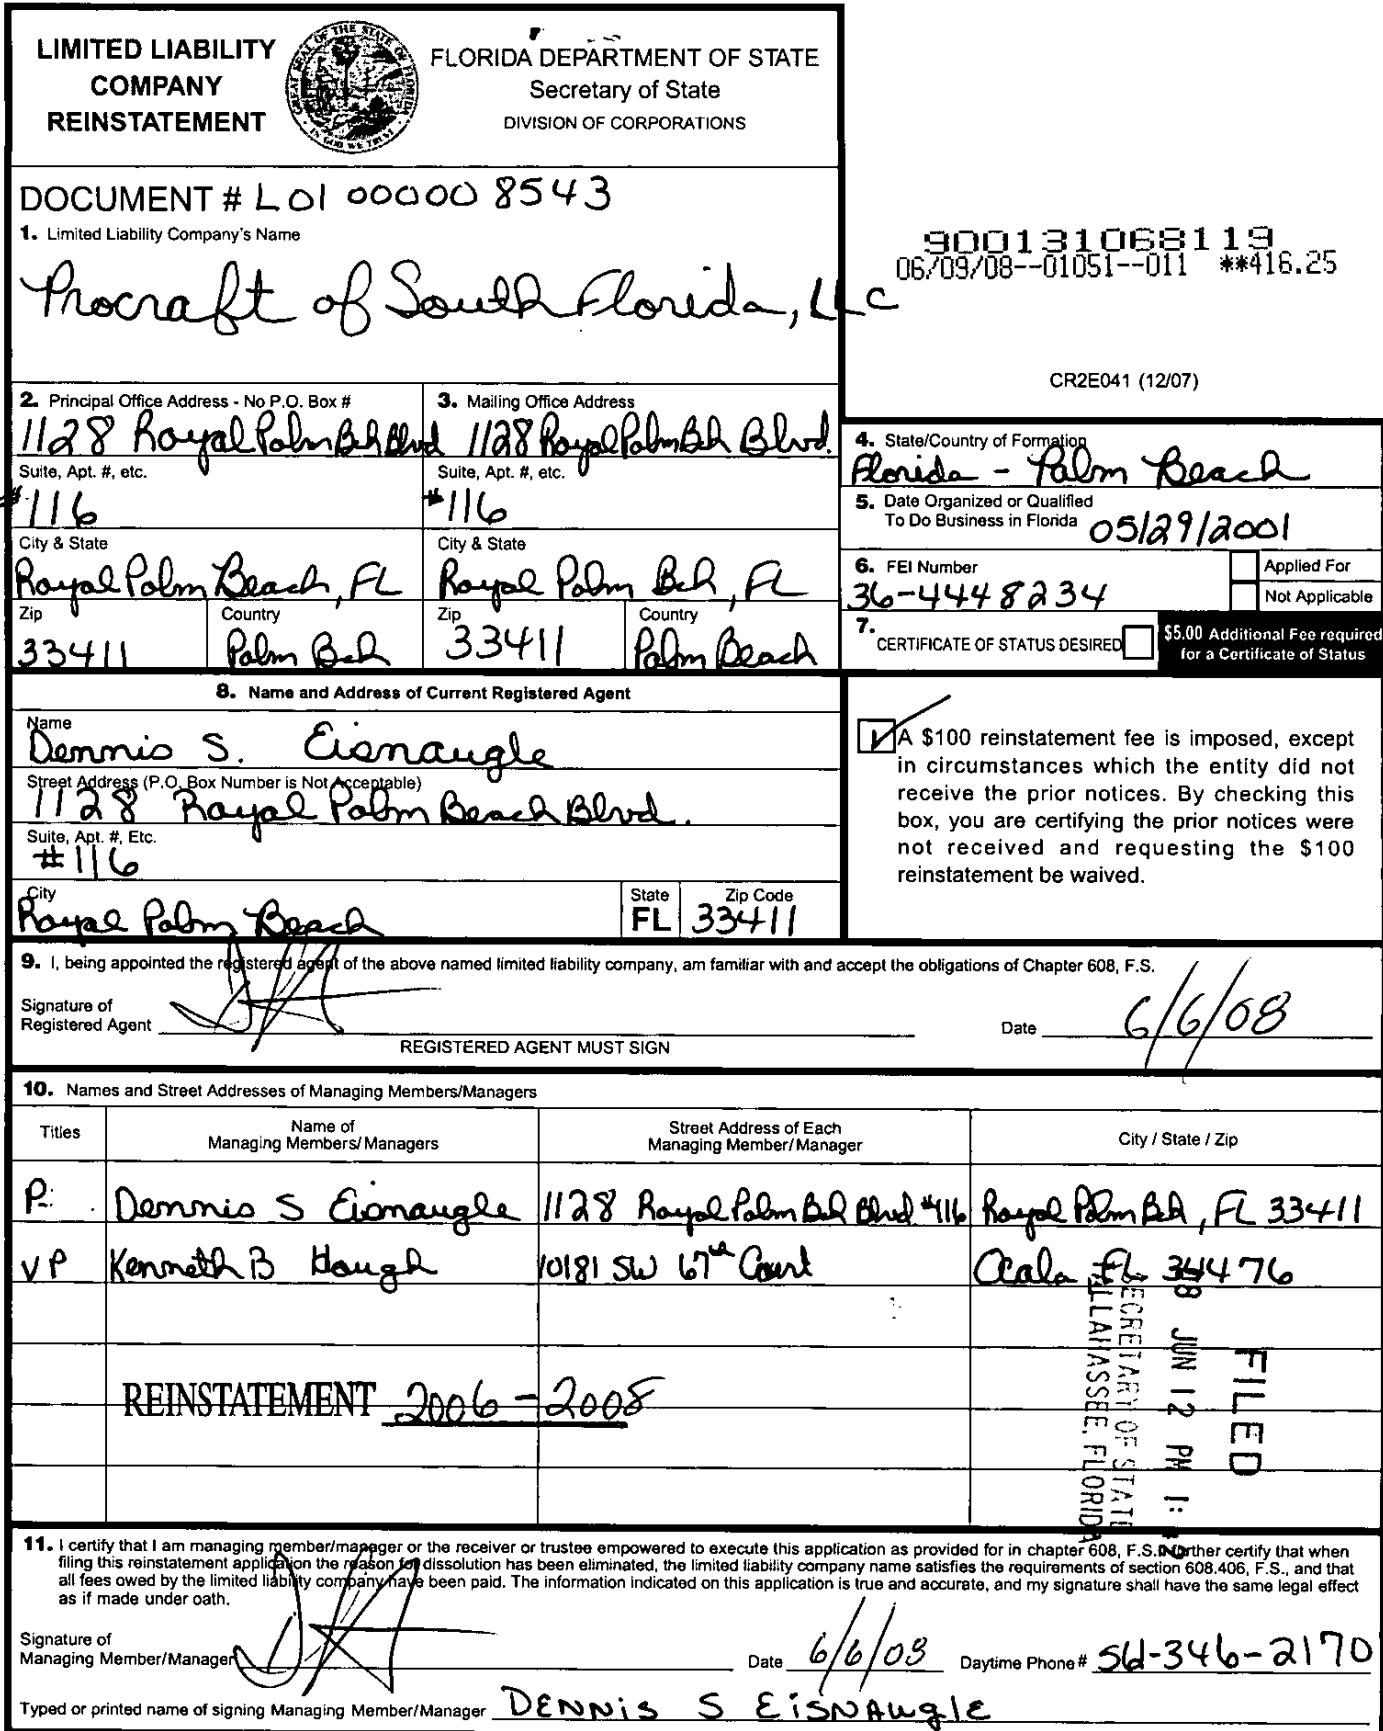 LIMITED LIABILITY
COMPANY
REINSTATEMENT
GREAT SEAL OF THE STATE OF FLORIDA
IN GOD WE TRUST
FLORIDA DEPARTMENT OF STATE
Secretary of State
DIVISION OF CORPORATIONS
DOCUMENT # L01 00000 8543
1. Limited Liability Company's Name
Procraft of South Florida, LLC
900131068119
06/09/08--01051--011 **416.25
CR2E041 (12/07)
2. Principal Office Address - No P.O. Box #
1128 Royal Palm Bch Blvd
Suite, Apt. #, etc.
#116
City & State
Royal Palm Beach, FL
Zip
33411
Country
Palm Bch
3. Mailing Office Address
1128 Royal Palm Bch Blvd.
Suite, Apt. #, etc.
#116
City & State
Royal Palm Bch, FL
Zip
33411
Country
Palm Beach
4. State/Country of Formation
Florida - Palm Beach
5. Date Organized or Qualified
To Do Business in Florida 05/29/2001
6. FEI Number
36-4448234
Applied For
Not Applicable
7. CERTIFICATE OF STATUS DESIRED
$5.00 Additional Fee required
for a Certificate of Status
8. Name and Address of Current Registered Agent
Name
Dennis S. Eisnaugle
Street Address (P.O. Box Number is Not Acceptable)
1128 Royal Palm Beach Blvd.
Suite, Apt. #, Etc.
#116
City
Royal Palm Beach
State
FL
Zip Code
33411
A $100 reinstatement fee is imposed, except
in circumstances which the entity did not
receive the prior notices. By checking this
box, you are certifying the prior notices were
not received and requesting the $100
reinstatement be waived.
9. I, being appointed the registered agent of the above named limited liability company, am familiar with and accept the obligations of Chapter 608, F.S.
Signature of
Registered Agent
REGISTERED AGENT MUST SIGN
Date 6/6/08
10. Names and Street Addresses of Managing Members/Managers
Titles
Name of
Managing Members/Managers
Street Address of Each
Managing Member/Manager
City / State / Zip
P. Dennis S Eisnaugle 1128 Royal Palm Bch Blvd #116 Royal Palm Bch, FL 33411
VP Kenneth B Hough 10181 SW 67th Court Ocala FL 34476
REINSTATEMENT 2006-2008
FILED
8 JUN 12 PM 1:
SECRETARY OF STATE
TALLAHASSEE, FLORIDA
11. I certify that I am managing member/manager or the receiver or trustee empowered to execute this application as provided for in chapter 608, F.S. I further certify that when
filing this reinstatement application the reason for dissolution has been eliminated, the limited liability company name satisfies the requirements of section 608.406, F.S., and that
all fees owed by the limited liability company have been paid. The information indicated on this application is true and accurate, and my signature shall have the same legal effect
as if made under oath.
Signature of
Managing Member/Manager
Date 6/6/08
Daytime Phone # 561-346-2170
Typed or printed name of signing Managing Member/Manager DENNIS S EISNAUGLE